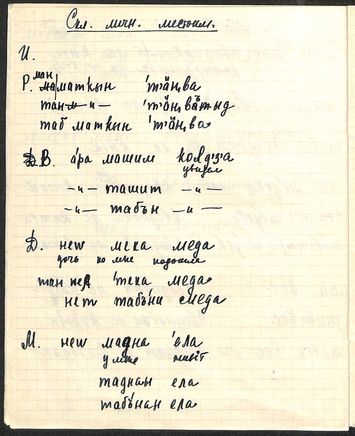 Скл. личн. местоим.
И.
ман
Р. маткын 'тӓӊва
тан —〃— 'тӓӊвӓтыд
таб маткын 'тӓӊва
В. ара машим колдза
увидел
—〃— ташит —〃—
—〃— табын —〃—
Д. неw мека меда
дочь ко мне подошла
тан 'тека меда
нет табъни
М. неw мадна 'ела
у мне живёт
таднан ела
табънан ела